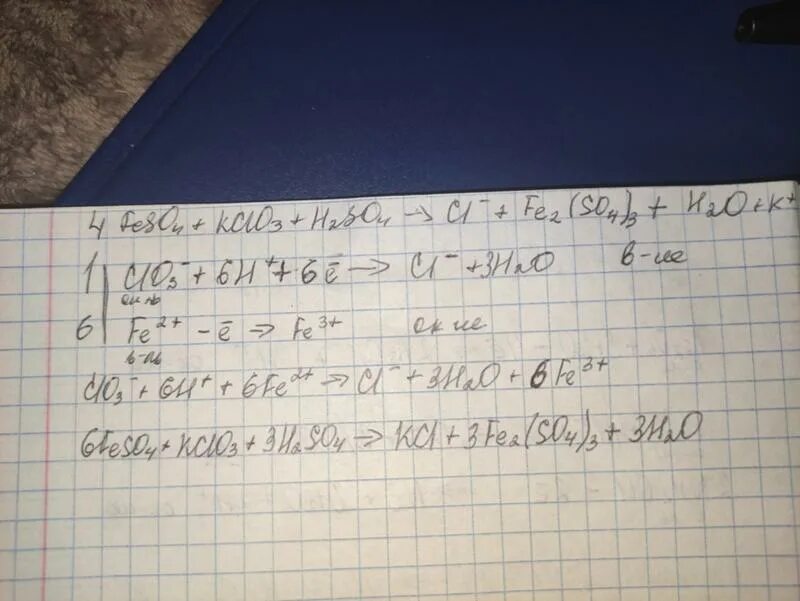 4 FeSO4 + KClO3 + H2SO4 → Cl⁻ + Fe2(SO4)3 + H2O + K+
1 | ClO3⁻ + 6H⁺ + 6ē → Cl⁻ + 3H2O в-ие
ок-ль
6 | Fe²⁺ - ē → Fe³⁺ ок-ие
в-ль
ClO3⁻ + 6H⁺ + 6Fe²⁺ → Cl⁻ + 3H2O + 6Fe³⁺
6FeSO4 + KClO3 + 3H2SO4 → KCl + 3Fe2(SO4)3 + 3H2O